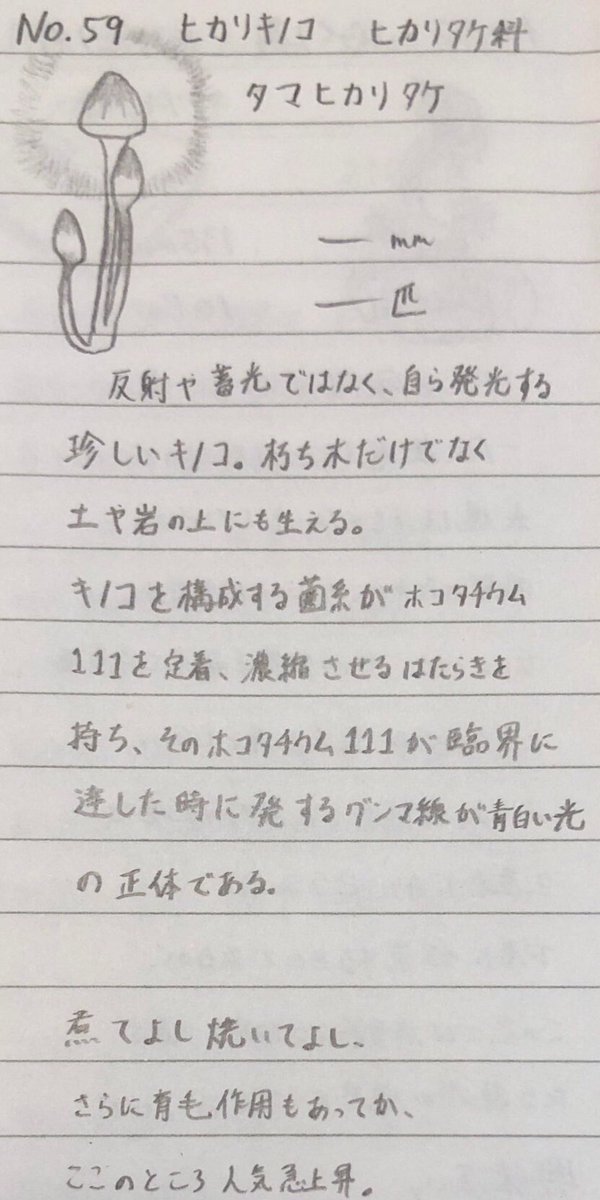 No.59 ヒカリキノコ ヒカリタケ科
タマヒカリタケ
― mm
― 匹
反射や蓄光ではなく、自ら発光する
珍しいキノコ。朽ち木だけでなく
土や岩の上にも生える。
キノコを構成する菌糸がホコタチウム
111を定着、濃縮させるはたらきを
持ち、そのホコタチウム111が臨界に
達した時に発するグンマ線が青白い光
の正体である。
煮てよし焼いてよし、
さらに育毛作用もあってか、
ここのところ人気急上昇。